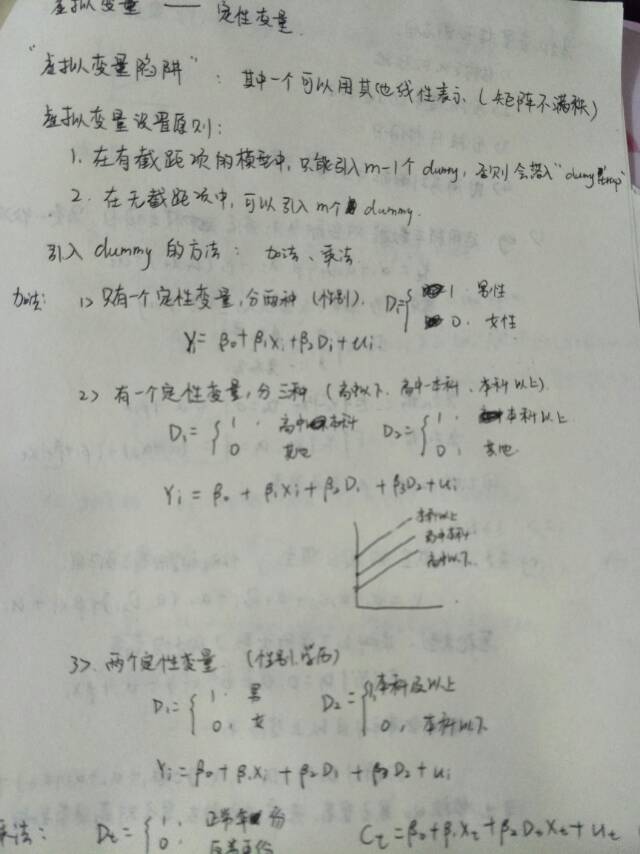 虚拟变量 —— 定性变量.
"虚拟变量陷阱": 其中一个可以用其他线性表示 (矩阵不满秩)
虚拟变量设置原则:
1. 在有截距项的模型中, 只能引入m-1个dummy, 否则会落入"dummy trap"
2. 在无截距项中, 可以引入m个dummy.
引入 dummy 的方法: 加法、乘法
加法: 1> 只有一个定性变量, 分两种 (性别). Di={ 1. 男性
0. 女性
Yi = β0+β1Xi+β2Di+ui.
2> 有一个定性变量, 分三种 (高中以下. 高中-本科. 本科以上).
D1={ 1. 高中本科 D2={ 1. 本科以上
0 其他 0. 其他
Yi = β0 + β1Xi + β2D1 + β3D2+ui
本科以上
高中本科
高中以下.
3>. 两个定性变量 (性别. 学历)
D1={ 1. 男 D2={ 1. 本科及以上
0, 女 0, 本科以下
Yi = β0 + β1Xi + β2D1 + β3D2 + ui
乘法: Dt={ 1. 正常年份 Ct = β0+β1Xt+β2DtXt+ut
0.